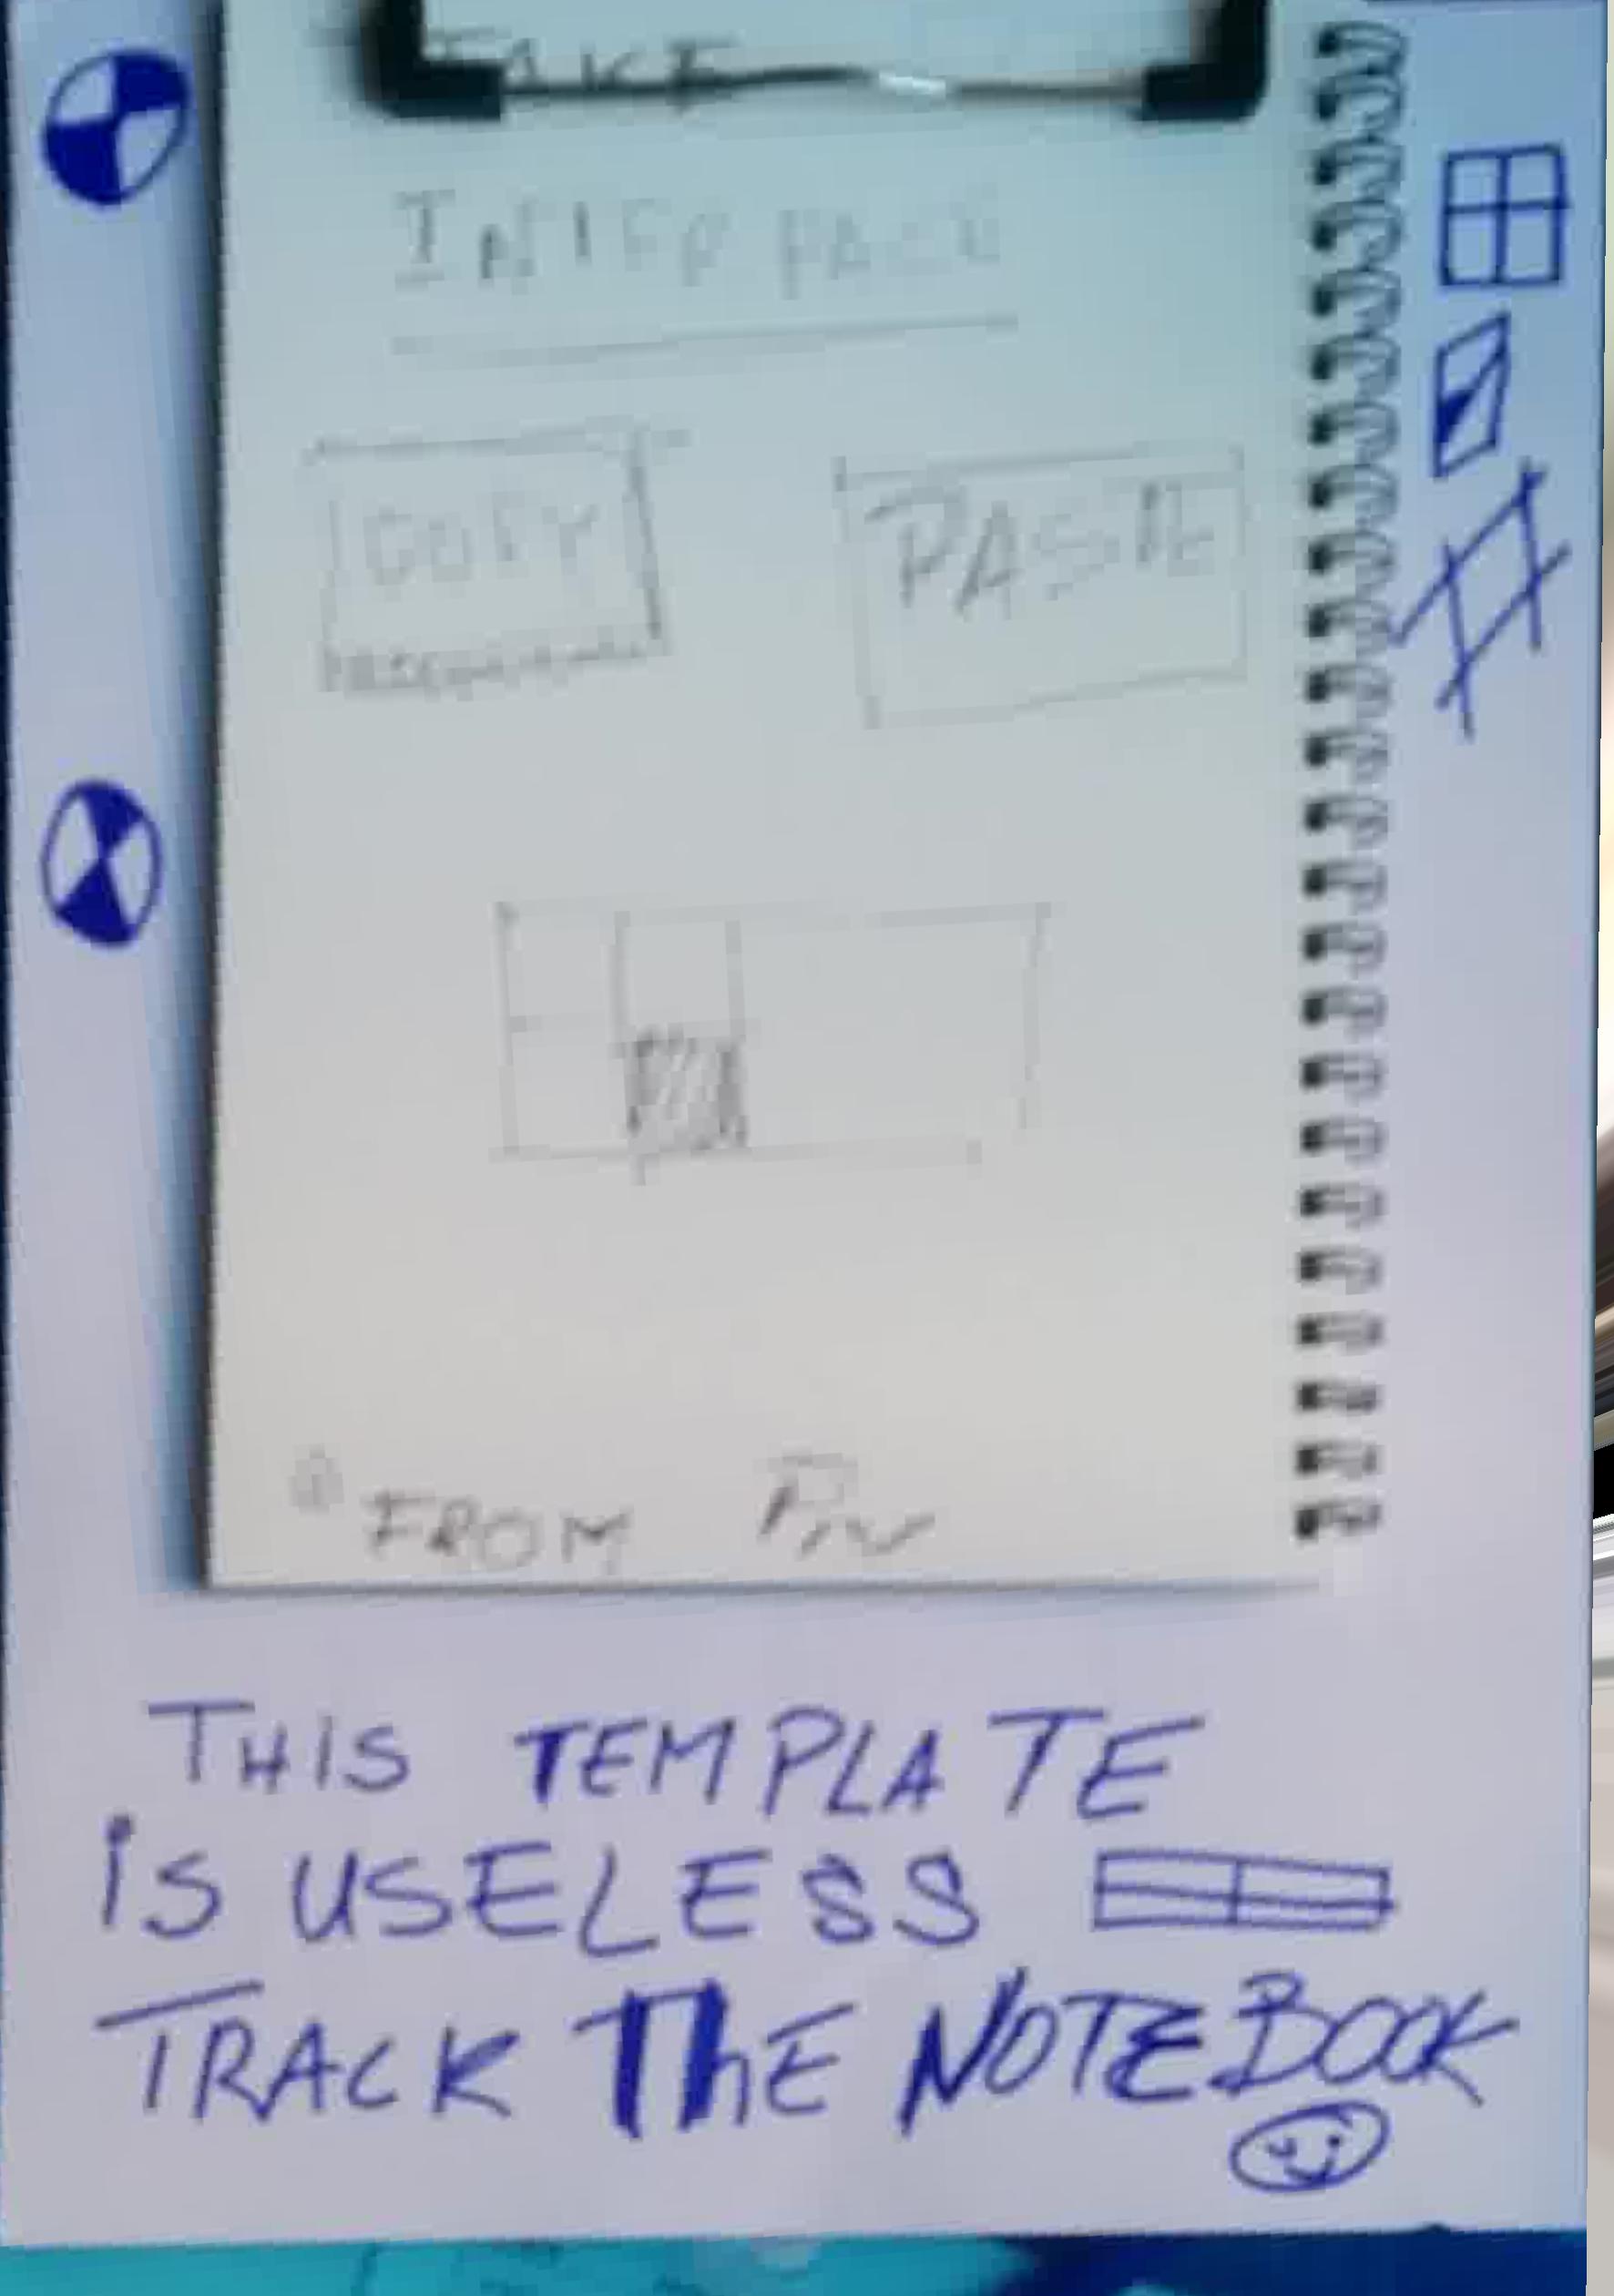 FAKE
INTERFACE
COPY PASTE
FROM
THIS TEMPLATE
iS USELESS
TRACK ThE NOTEBOOK